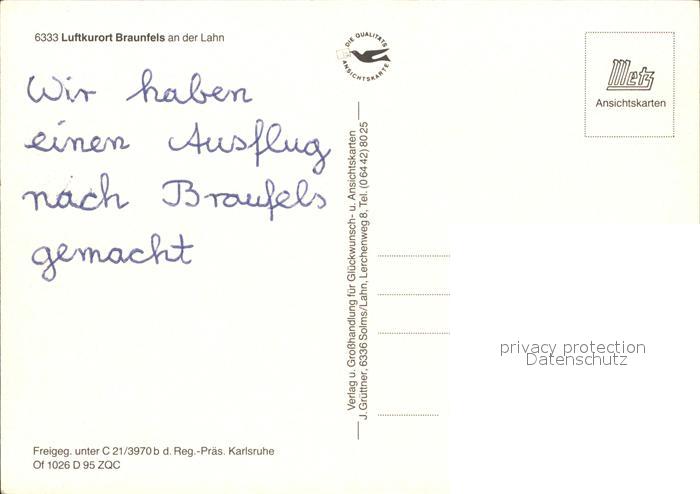 6333 Luftkurort Braunfels an der Lahn
Wir haben
einen Ausflug
nach Braufels
gemacht
Freigeg. unter C 21/3970 b d. Reg.-Präs. Karlsruhe
Of 1026 D 95 ZQC
DIE QUALITÄTS
ANSICHTSKARTE
Verlag u. Großhandlung für Glückwunsch- u. Ansichtskarten
J. Grüttner, 6336 Solms/Lahn, Lerchenweg 8, Tel. (0 64 42) 80 25
Metz
Ansichtskarten
privacy protection
Datenschutz